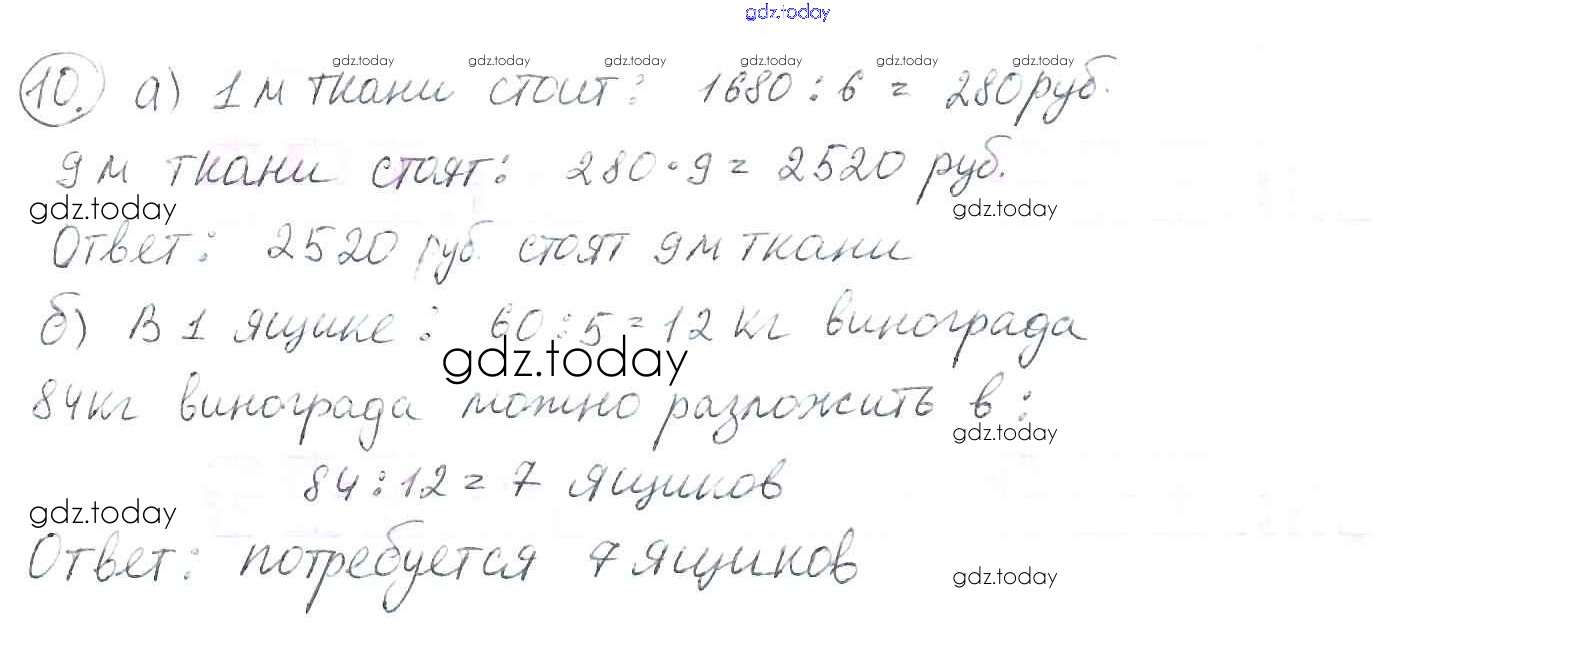 gdz.today
gdz.today gdz.today gdz.today gdz.today gdz.today gdz.today
10. а) 1 м ткани стоит: 1680 : 6 = 280 руб.
9 м ткани стоят: 280 · 9 = 2520 руб.
gdz.today gdz.today
Ответ: 2520 руб. стоят 9 м ткани
б) В 1 ящике: 60 : 5 = 12 кг винограда
gdz.today
84 кг винограда можно разложить в:
gdz.today
84 : 12 = 7 ящиков
gdz.today
Ответ: потребуется 7 ящиков
gdz.today